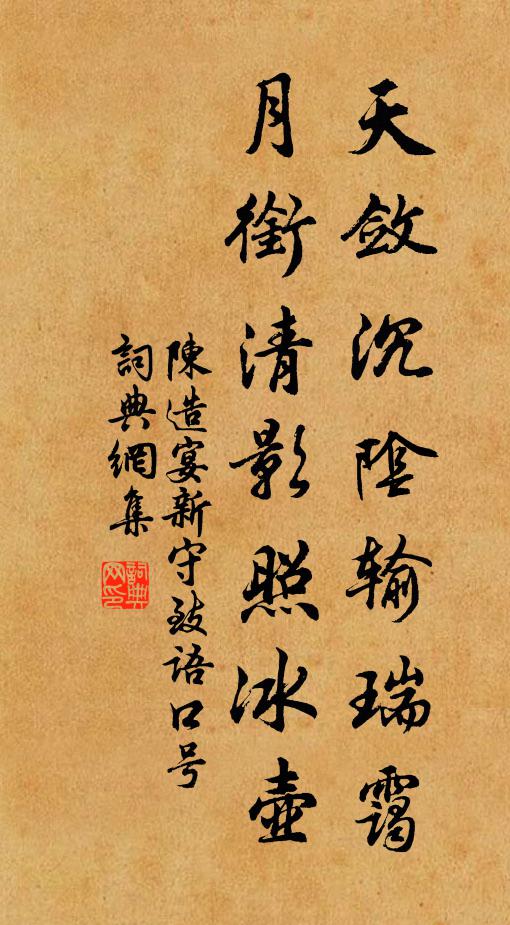 天斂沉陰输瑞靄
月銜清影照冰壺
陳造宴新守致語口号
詞典網集
詞典
网印